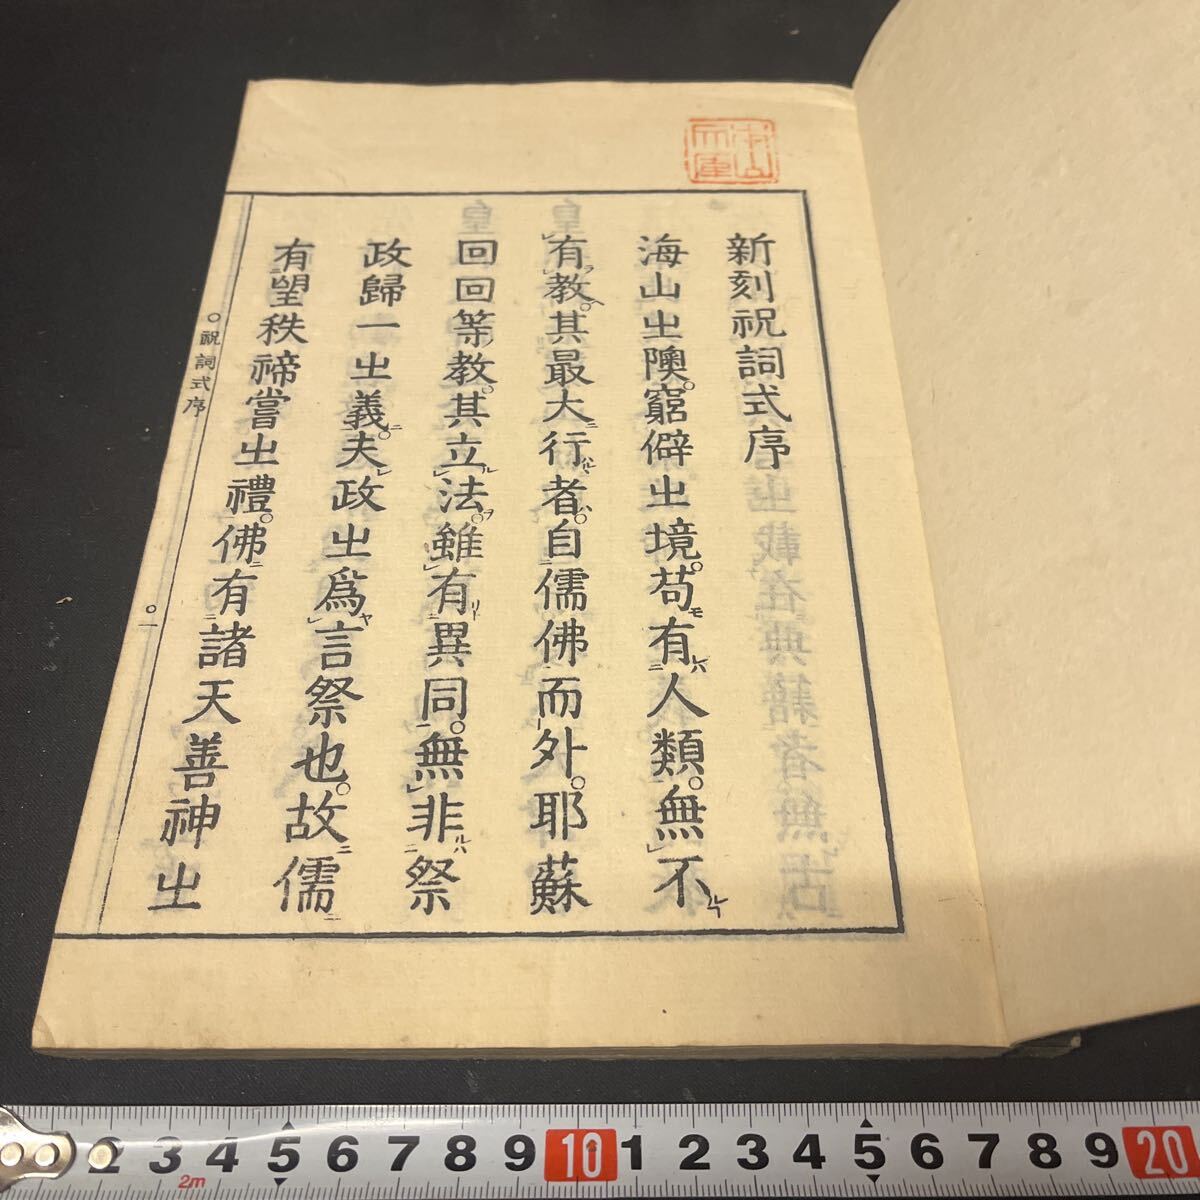 新刻祝詞式序
海山㞢隩。窮僻㞢境。苟有人類。無不
有教。其最大行者。自儒佛而外。耶蘇
回回等教。其立法。雖有異同。無非祭
政歸一㞢義。夫政㞢爲言祭也。故儒
有望秩禘嘗㞢禮。佛有諸天善神㞢
○祝詞式序 ○一
2 3 4 5 6 7 8 9 10 1 2 3 4 5 6 7 8 9 20
2m